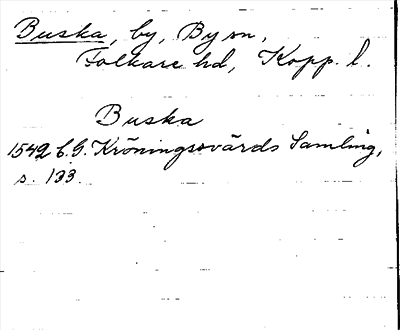 Buska, by, By sn,
Folkare hd, Kopp. l.
Buska
1542 C.G. Kröningssvärds Samling,
s. 133.